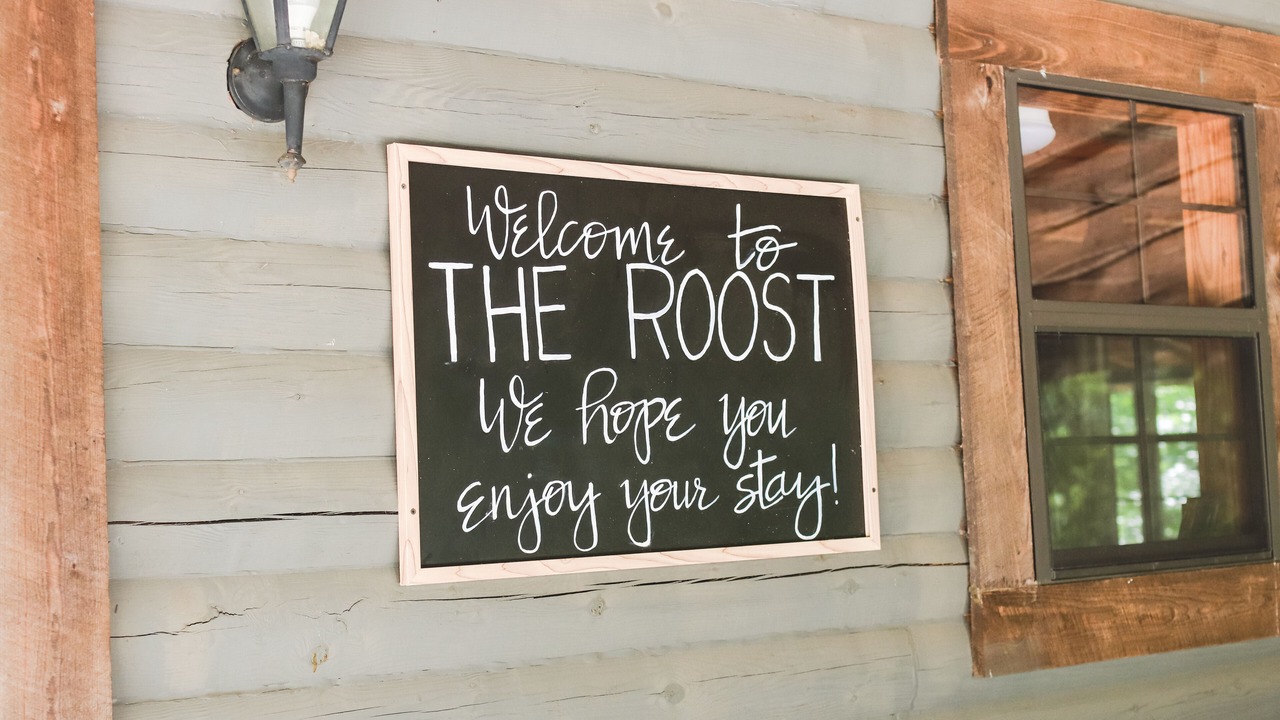 Welcome to
THE ROOST
We hope you
enjoy your stay!